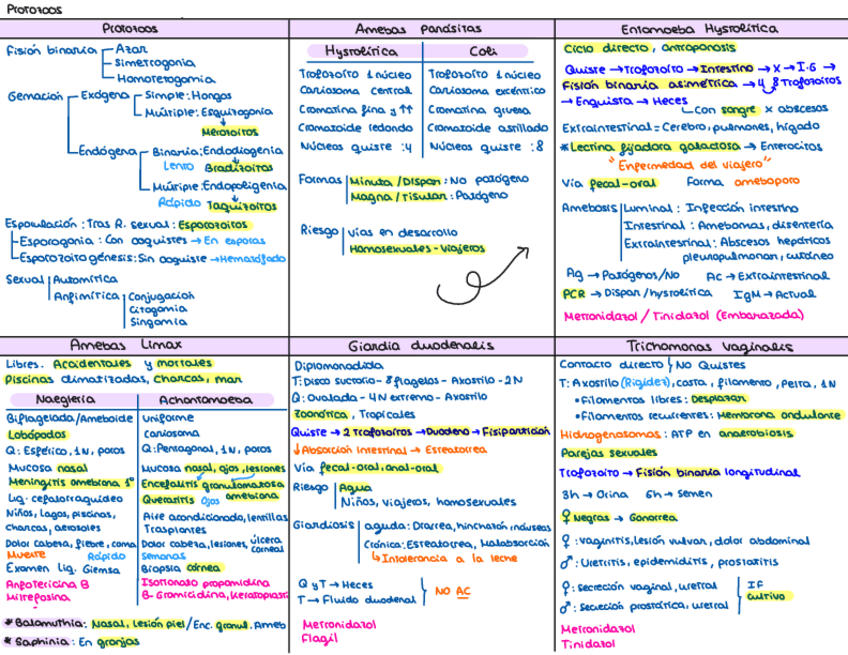 Protozoos
Protozoos
Fisión binaria
Azar
Simetrogonia
Homoterogamia
Gemación
Exógena
Simple: Hongos
Múltiple: Esquizogonia
Merozoitos
Endógena
Binaria: Endodiogenia
Lento Bradizoitos
Múltiple: Endopoligenia
Rápido Taquizoitos
Esporulación: Tras R. sexual: Esporozoitos
Esporogonia: Con ooquistes → En esporas
Esporozoito génesis: Sin ooquiste → Hemató fado
Sexual
Automítica
Anfimítica
Conjugación
Citogamia
Singamia
Amebas Parásitas
Hystolítica
Coli
Trofozoíto 1 núcleo
Trofozoíto 1 núcleo
Cariosoma central
Cariosoma excéntrico
Cromatina fina y ↑↑
Cromatina gruesa
Cromatoide redondo
Cromatoide astillado
Núcleos quiste :4
Núcleos quiste :8
Formas
Minuta / Dispar: No patógeno
Magna / Tisular: Patógeno
Riesgo
Vías en desarrollo
Homosexuales - Viajeros
Entamoeba Hystolítica
Ciclo directo, antroponosis
Quiste → Trofozoíto → Intestino → X → I.G →
Fisión binaria asimétrica → 4 8 Trofozoitos
→ Enquista → Heces
Con sangre x abscesos
Extraintestinal = Cerebro, pulmones, hígado
* Lectina fijadora galactosa → Enterocitos
"Enfermedad del viajero"
Vía fecal-oral Forma ameboporo
Amebosis
Luminal: Infección intestino
Intestinal: Amebomas, disentería
Extraintestinal: Abscesos hepáticos
pleuropulmonar, cutáneo
Ag → Patógenos/No Ac → Extraintestinal
PCR → Dispar / hystolítica IgM → Actual
Metronidazol / Tinidazol (Embarazada)
Amebas Limax
Libres. Accidentales y mortales
Piscinas climatizadas, charcas, mar
Naegleria
Achantamoeba
Biflagelada/Ameboide
Uniforme
Lobópodos
Cariosoma
Q: Esférico, 1N, poros
Q: Pentagonal, 1N, poros
Mucosa nasal
Mucosa nasal, ojos, lesiones
Meningitis amebiana 1º
Encefalitis granulomatosa
Queratitis Ojos amebiana
Liq. cefalorraquídeo
Niños, lagos, piscinas,
Aire acondicionado, lentillas
charcas, aerosoles
Trasplantes
Dolor cabeza, fiebre, coma
Dolor cabeza, lesiones, úlcera corneal
Muerte Rápido
Semanas
Examen liq. Giemsa
Biopsia córnea
Anfotericina B
Isetionato propamidina
Miltefosina
B- Gramicidina, keratoplasti
* Balamuthia: Nasal, Lesión piel / Enc. granul. Ameb
* Saphinia: En granjas
Giardia duodenalis
Diplomonadida
T: Disco suctorio - 8 flagelos - Axostilo - 2N
Q: Ovalada - 4N extremo - Axostilo
Zoonótica, Tropicales
Quiste → 2 Trofozoítos → Duodeno → Fisipartición
↓ Absorción intestinal → Esteatorrea
Vía fecal-oral, anal-oral
Riesgo
Agua
Niños, viajeros, homosexuales
Giardiosis
aguda: Diarrea, hinchazón, náuseas
Crónica: Esteatorrea, Malabsorción
↳ Intolerancia a la leche
Q y T → Heces
T → Fluido duodenal
NO AC
Metronidazol
Flagil
Trichomonas vaginalis
Contacto directo / No Quistes
T: Axostilo (Rigidez), costa, filamento, Pelta, 1N
• Filamentos libres: Desplazan
• Filamentos recurrentes: Membrana ondulante
Hidrogenosomas: ATP en anaerobiosis
Parejas sexuales
Trofozoito → Fisión binaria longitudinal
3h → Orina 6h → Semen
♀ Negras → Gonorrea
♀: Vaginitis, lesión vulvar, dolor abdominal
♂: Uretritis, epidimiditis, prostatitis
♀: Secreción vaginal, uretral
♂: Secreción prostática, uretral
IF
Cultivo
Metronidazol
Tinidazol